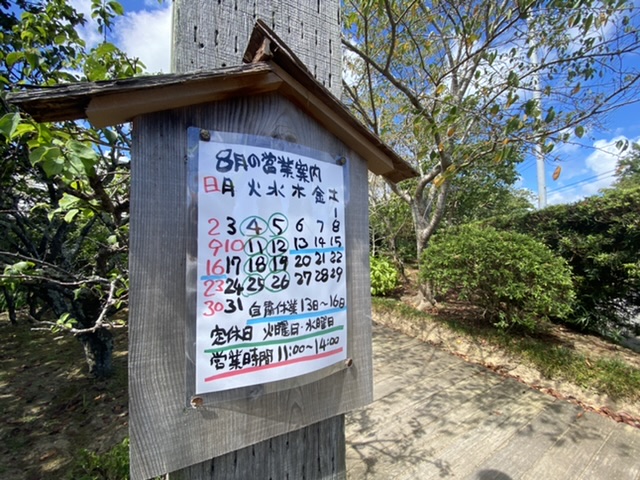 8月の営業案内
日 月 火 水 木 金 土
1
2 3 4 5 6 7 8
9 10 11 12 13 14 15
16 17 18 19 20 21 22
23 24 25 26 27 28 29
30 31 自店休業 13日~16日
定休日 火曜日・水曜日
営業時間 11:00~14:00